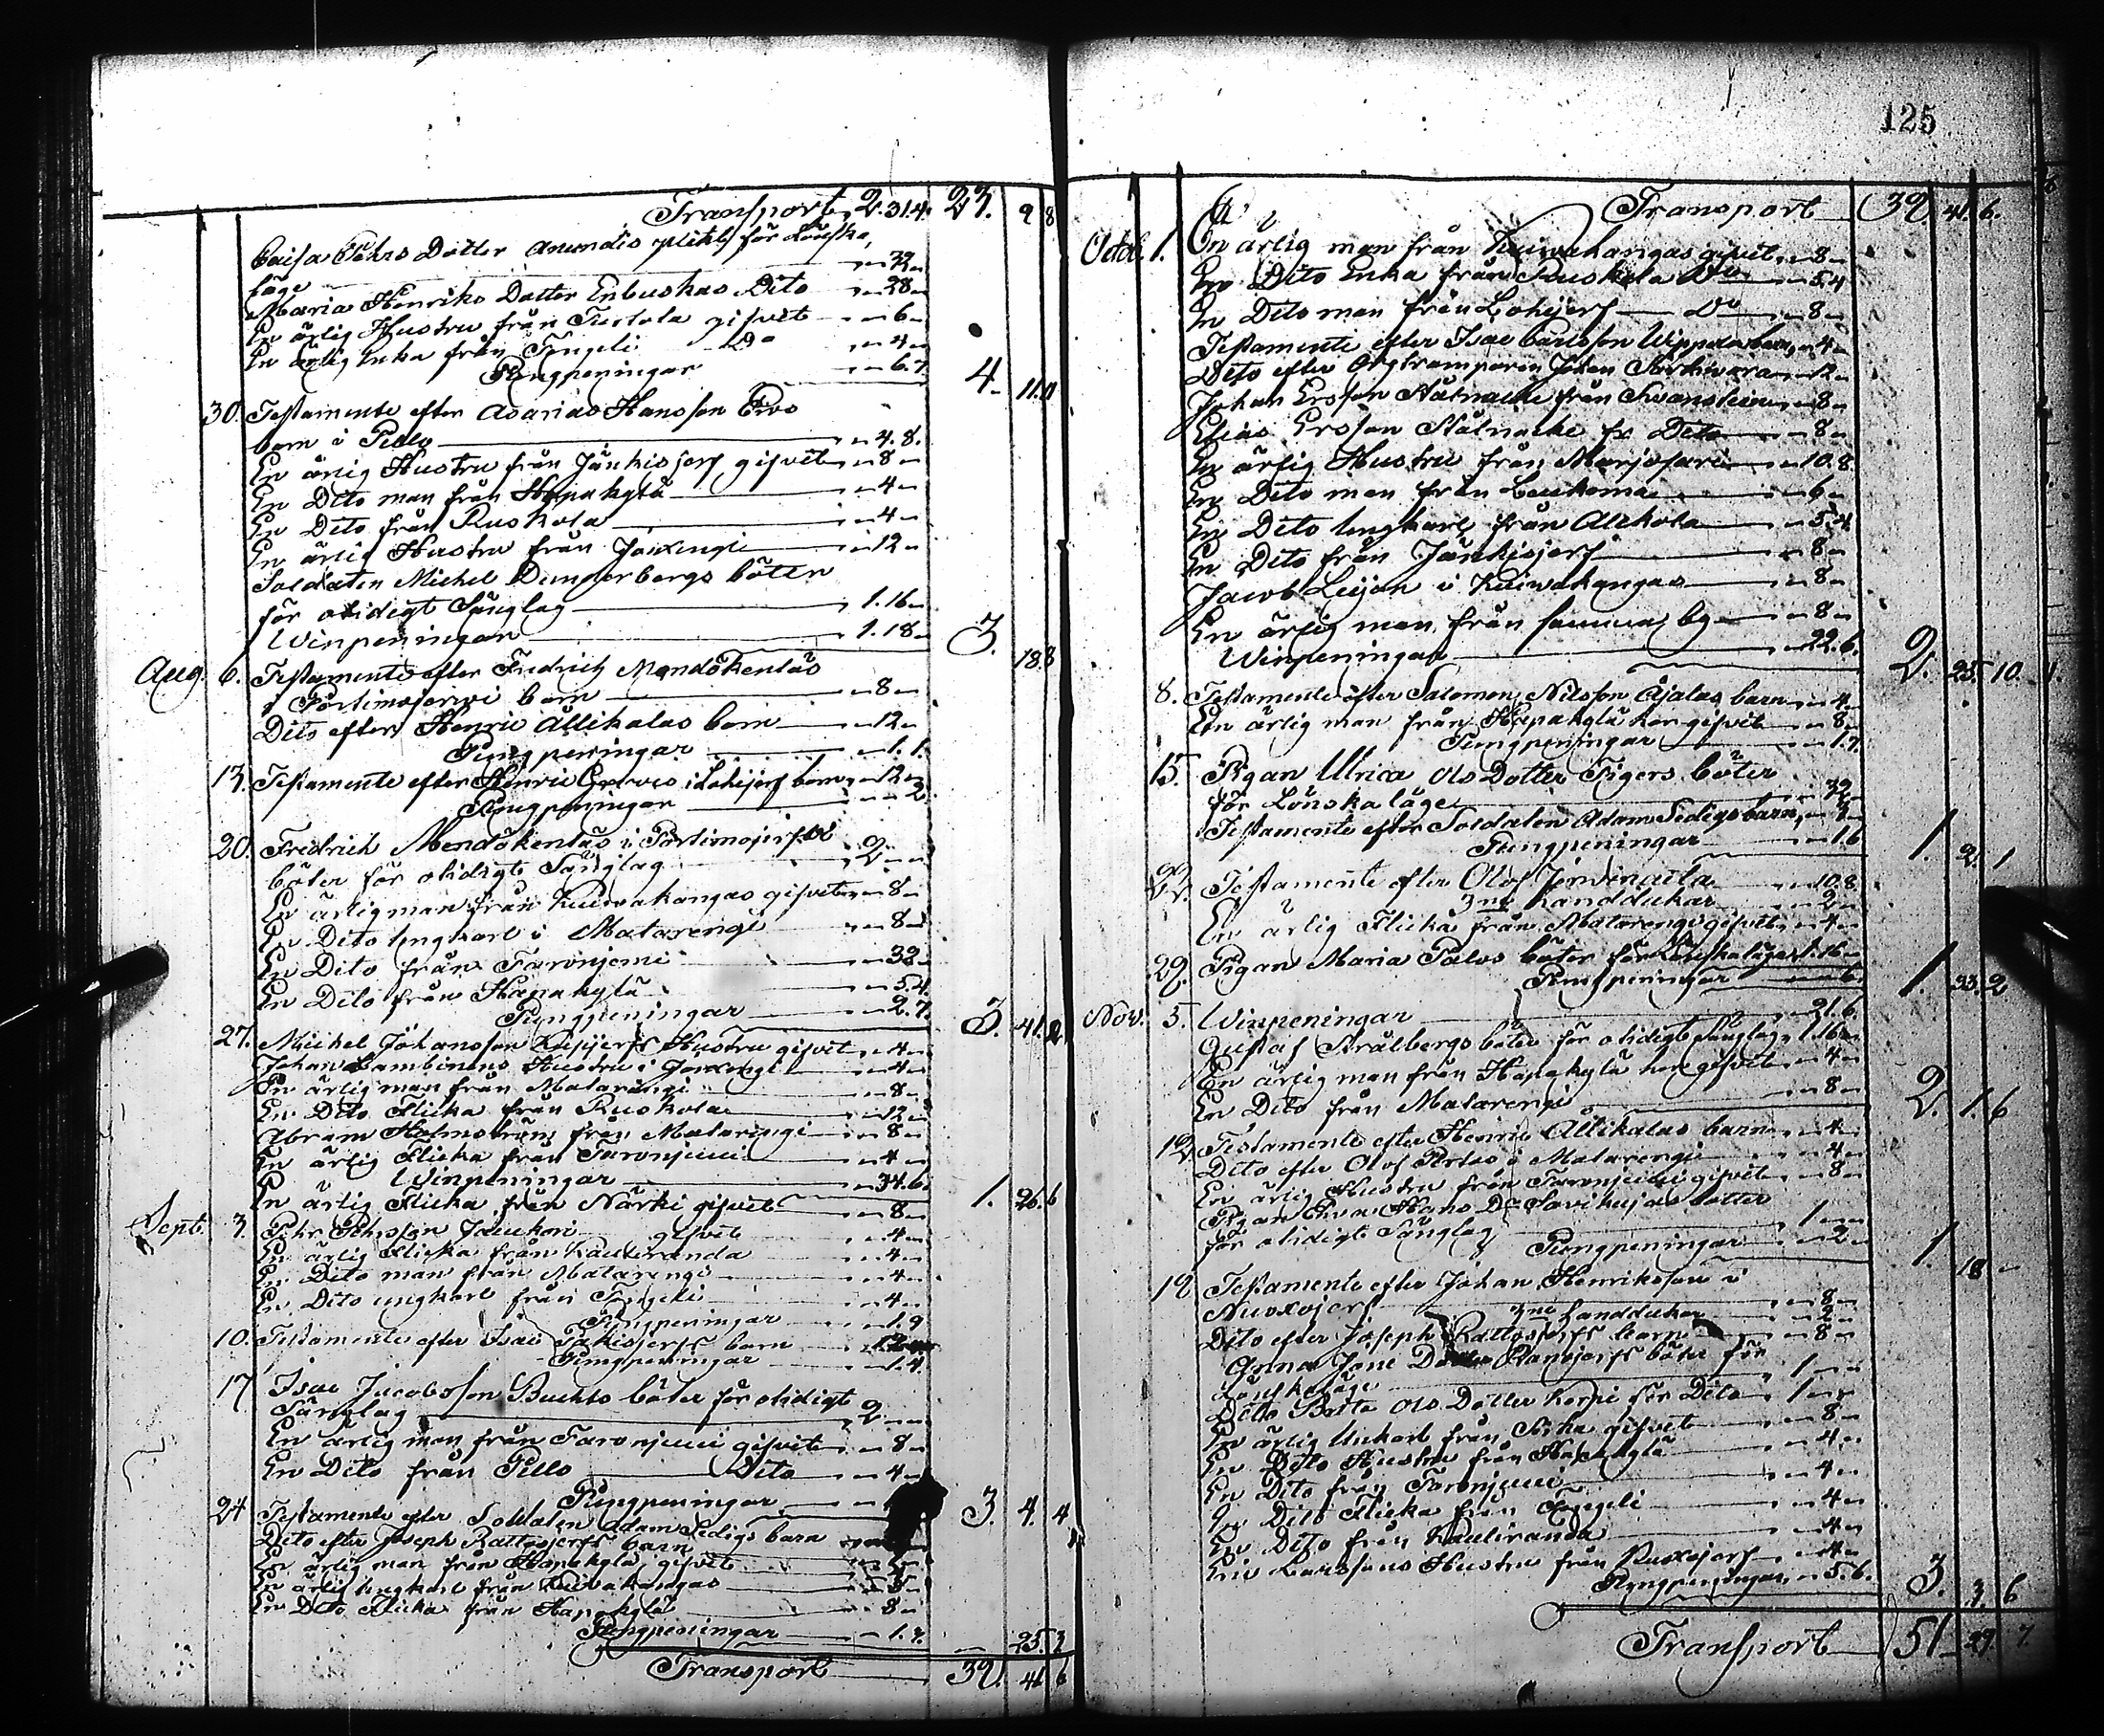 Transport 2.31.4. 23. 9 8
Caisa Pehrs Dotter Anundis plikt för Lönska
läge — 32 —
Maria Henriks Dotter Enbuskas Dito — 28 —
En ärlig Hustru från Turtola gifvit — 6 —
En ärlig Enka från Tengeli Do — 4 —
Pungpeningar — 6.7 4. 11.11
30. Testamente efter Asarias Hansson
barn i Pello — 4.8.
En ärlig Hustru från Jänkisjerf gifvit — 8 —
En Dito man från Hapakylä — 4 —
En Dito från Ruskola — 4 —
En ärlig Hustru från Jouxengi — 12 —
Soldaten Michel Dunderbergs böter
för otidigt Sänglag — 1.16 —
Winpeningar — 1.18 — 3. 18.8
Aug. 6. Testamente efter Fredrich Mendökentäs
i Portimojerwi barn — 8 —
Dito efter Henric Allikalas barn — 12 —
Pungpeningar — 1.1.
13. Testamente efter Henric i Lohijerf barn — 12 —
Pungpeningar — 2
20. Fredrich Mendökentäs i Portimojerfwi
böter för otidigt Sänglag — 2 —
En ärlig man från Kuiwakangas gifvit — 8 —
En Dito Ungkarl i Matarengi — 8 —
En Dito från Taronjemi — 32 —
En Dito från Hapakylä — 5.4
Pungpeningar — 2.7. 3. 41.2
27. Michel Johansson Hustru gifvit — 4 —
Johan Lambinens Hustru i Jouxengi — 4 —
En ärlig man från Matarengi — 8 —
En Dito Flicka från Ruskola — 12 —
Abram Holmström från Matarengi — 8 —
En ärlig Flicka från Taronjemi — 4 —
Winpeningar — 34.6. 1. 26.6
En ärlig Flicka från Närki gifvit — 8 —
Sept. 3. Pehr Pehrsson Jauhoi gifvit — 4 —
En ärlig Flicka från Kauliranda — 4 —
En Dito man från Matarengi — 4 —
En Dito ungkarl från Tengeli — 4 —
Pungpeningar — 1.9
10. Testamente efter Isac barn — 12 —
Pungpeningar — 1.4.
17 Isac Jacobsson Buchts böter för otidigt
Sänglag — 2 —
En ärlig man från Taronjemi gifvit — 8 —
En Dito från Pello Dito — 4 —
Pungpeningar — 3. 4. 4
24 Testamente efter Soldaten Adam Ledigs barn
Dito efter Joseph Rattosjerfs barn
En ärlig man från Hapakylä gifvit
En ärlig Ungkarl från Kuiwakangas — 8 —
En Dito Flicka från Hapakylä — 8 —
Pungpeningar — 1.7. — 25.2
Transport 39. 41 6
125
Transport 39. 41. 6.
Octob. 1. En ärlig man från Kuiwakangas gifvit — 8 —
En Dito Enka från Ruskola Do — 5.4
En Dito man från Lohijerf — Do — 8 —
Testamente efter Isac Carlsson Wippolas barn — 4 —
Dito efter Orgtramparen Johan — 12 —
Johan Ersson Stålnacke från Svanstein — 8 —
Elias Ersson Stålnacke fr Dito — 8 —
En ärlig Hustru från Marjosari — 10.8
En Dito man från — 6 —
En Dito Ungkarl från Alkola — 5.4
En Dito från Jänkisjerf — 8 —
Jacob Leijon i Kuiwakangas — 8 —
En ärlig man från samma by — 8 —
Winpeningar — 22.6. 2. 25. 10
8. Testamente efter Salomon Nilsson Äjalas barn — 4 —
En ärlig man från Hapakylä har gifvit — 8 —
Pungpeningar — 1.7.
15. Pigan Ulrica Ols Dotter Tigers böter
för Lönskaläge — 32 —
Testamente efter Soldaten Adam Ledigs barn — 8 —
Pungpeningar — 1.6 1. 9. 1
22. Testamente efter Olof — 10.8.
3ne handdukar — 2 —
En ärlig Flicka från Matarengi gifvit — 4 —
29. Pigan Maria Palos böter för Lönskaläge 1.16 —
Pungpeningar — 6. 1 33. 2
Nov. 5. Winpeningar — 21.6.
Gustaf Strålbergs böter för otidigt Sänglag 1.16 —
En ärlig man från Hapakylä har gifvit — 4 —
En Dito från Matarengi — 8 — 2. 1. 6
12 Testamente efter Henric Allikalas barn — 4 —
Dito efter Olof i Matarengi — 4 —
En ärlig Hustru från Taronjemi gifvit — 8 —
Pigan Hans Dr böter
för otidigt Sänglag — 1 —
Pungpeningar — 2 — 1. 18 —
19 Testamente efter Johan Henriksson i
Ruoxojerf — 8 —
3ne handdukar — 2 —
Dito efter Joseph Rattosjerfs barn — 8 —
Anna Jöns Dotter böter för
Lönskaläge — 1 —
Dito Brita Ols Dotter Korpi för Dito — 1 —
En ärlig Unkarl från gifvit — 8 —
En Dito Hustru från Hapakylä — 4 —
En Dito från Taronjemi — 4 —
En Dito Flicka från Tengeli — 4 —
En Dito från Kauliranda — 4 —
Eric Larssons Hustru från Ruoxojerf — 4 —
Pungpeningar — 5.6. 3. 3. 6
Transport 51 27 7.